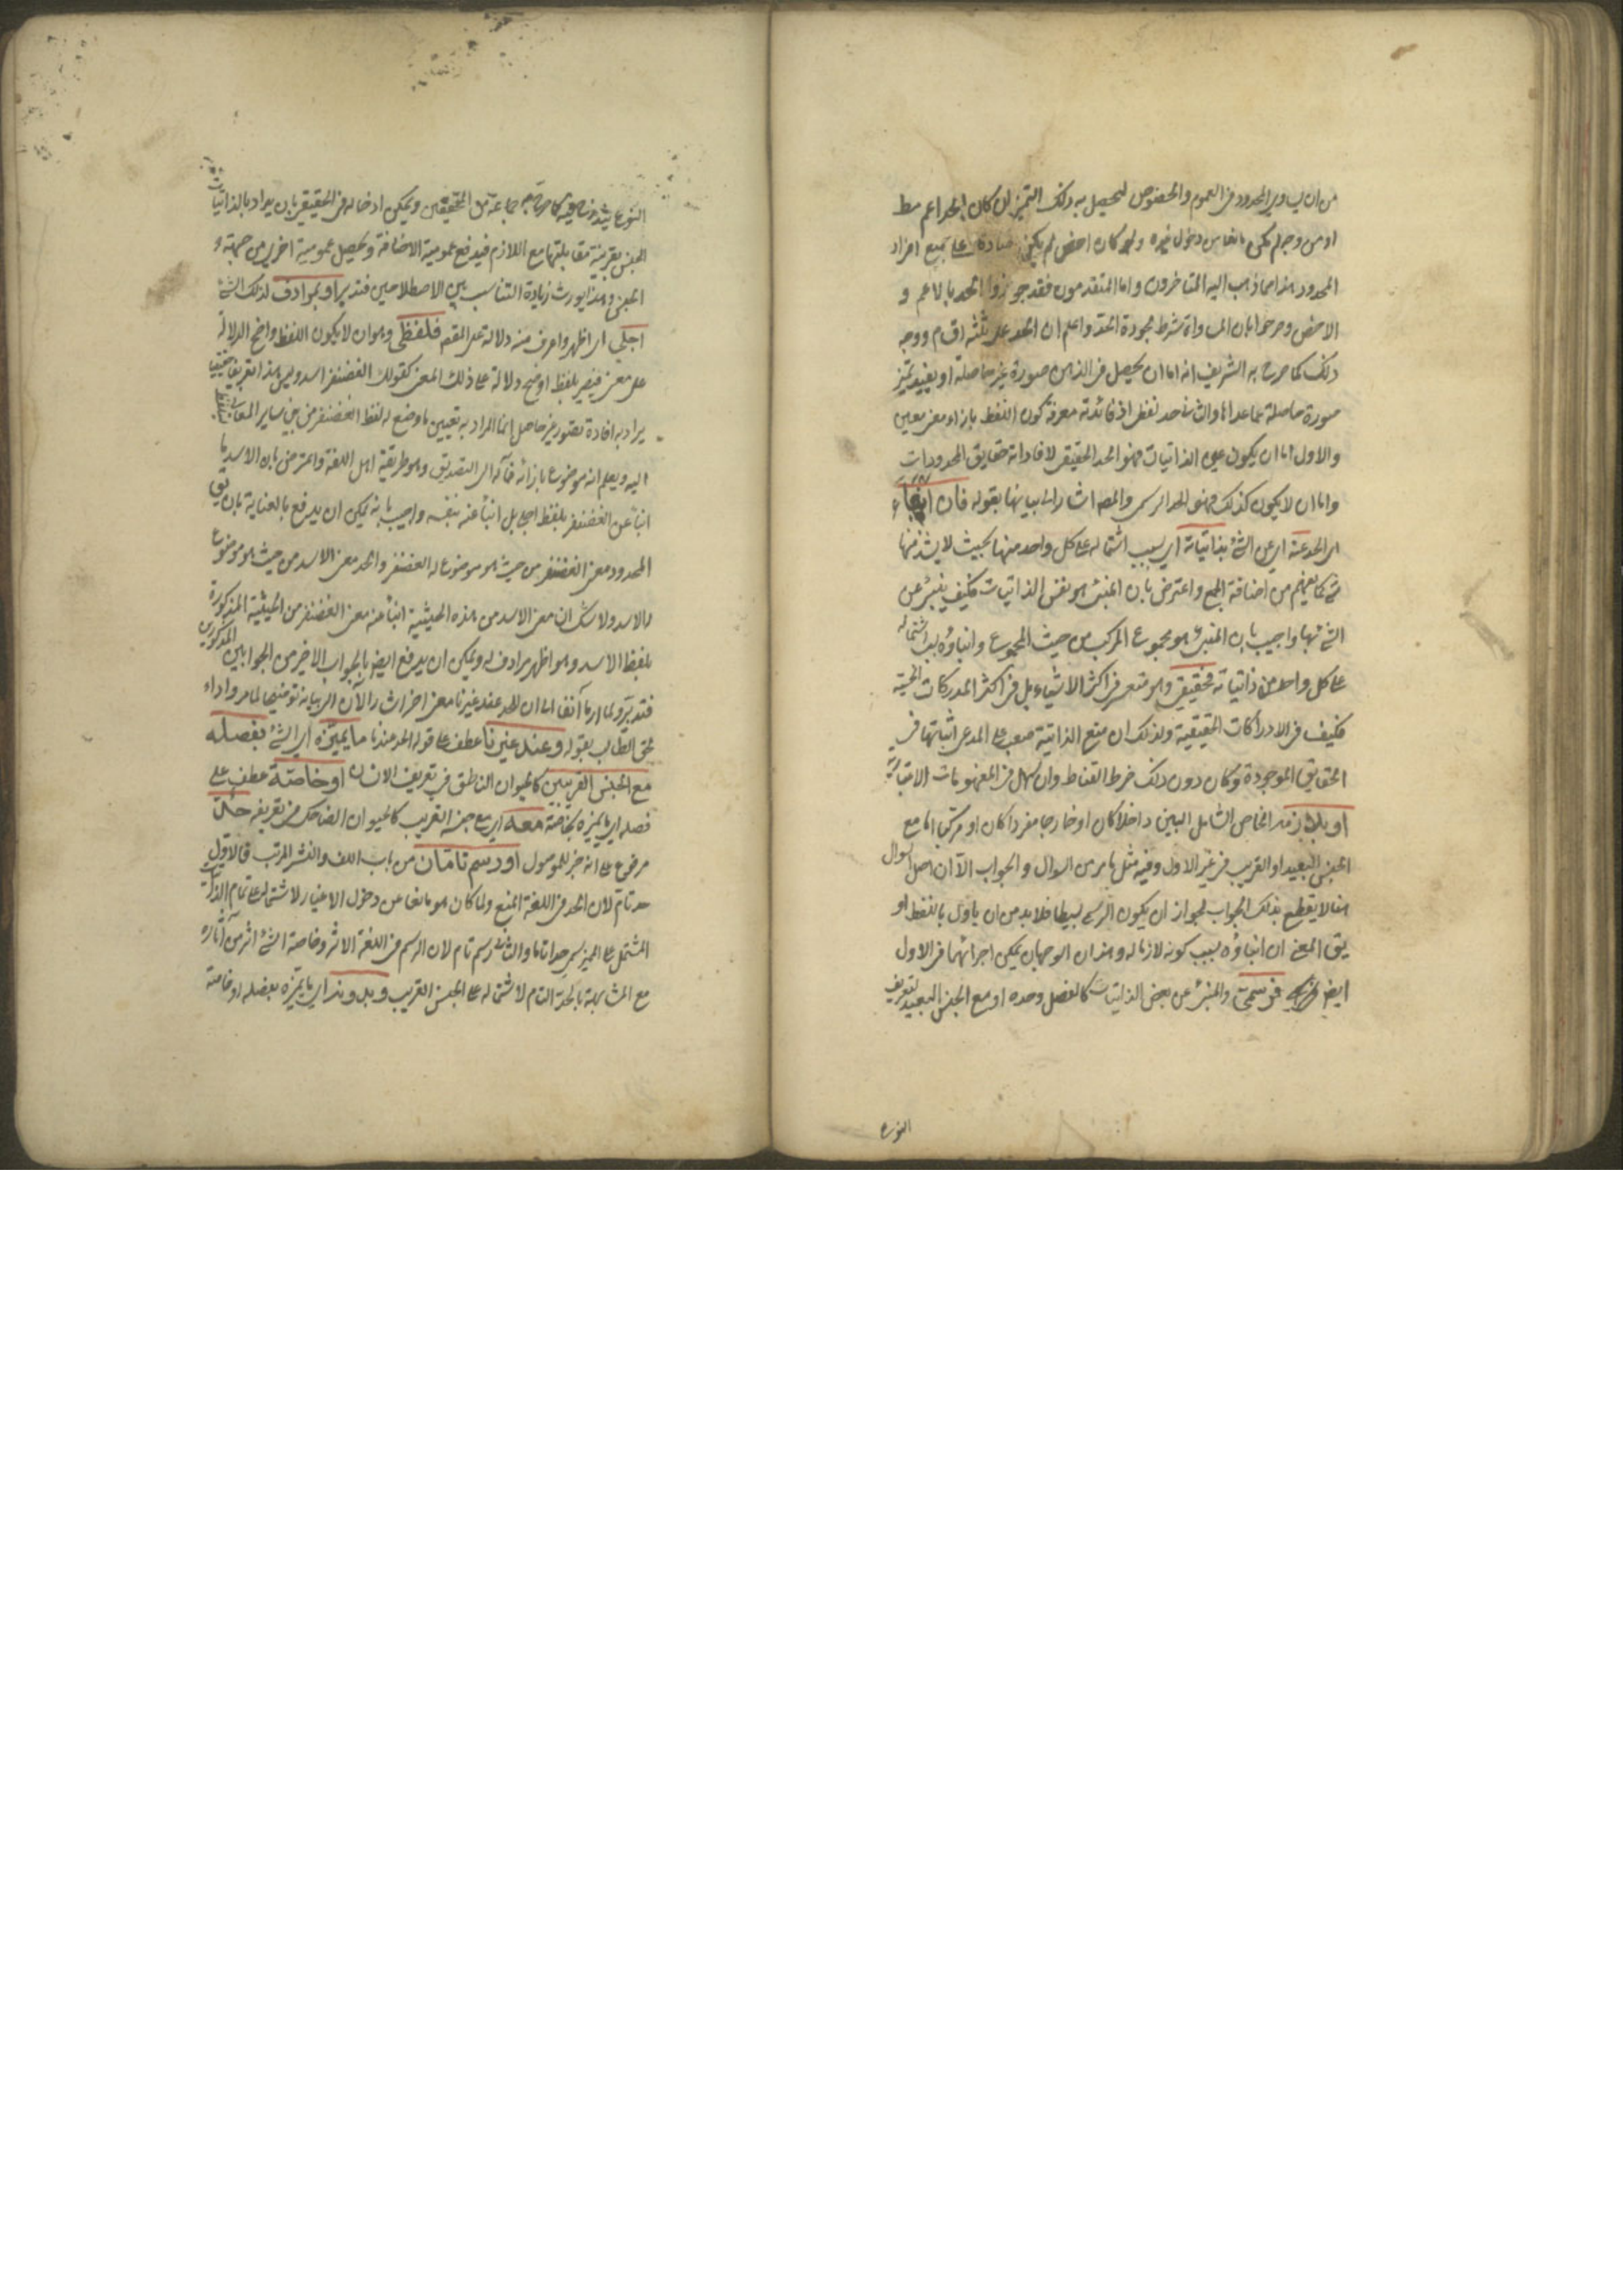 من ان يساوي المحدود في العموم والخصوص ليحصل به ذلك التميز لان كان الحد اعم مط
او من وجه لم يكن مانعا من دخول غيره ولو كان اخص لم يكن صادقا على جميع افراد
المحدود هذا مما ذهب اليه المتاخرون واما المتقدمون فقد جوزوا الحد بالاعم و
الاخص وصرحوا بان المساواة شرط لجودة الحد واعلم ان الحد على ثلثه اقسام ووجه
ذلك كما صرح به الشريف انه اما ان يحصل في الذهن صورة غير حاصلة او يفيد تميز
صورة حاصلة عما عداها والثاني حد لفظي اذ فائدته معرفة كون اللفظ بازاء معنى معين
والاول اما ان يكون بمحض الذاتيات فهو الحد الحقيقي لافادته حقايق المحدودات
واما ان لا يكون كذلك فهو الحد الرسمي والمص اشار الى بيانها بقوله فان انبأ
اي الحد عنه اي عن الشئ بذاتياته اي بسبب اشتماله على كل واحد منها بحيث لا يشذ منها
شئ كما يفهم من اضافة الجمع واعترض بان المنبئ هو نفس الذاتيات فكيف ينبئ عن
الشئ بها واجيب بان المنبئ هو مجموع المركب من حيث المجموع وانباؤه بسبب اشتماله
على كل واحد من ذاتياته فحقيقي وهو متعسر في اكثر الاشياء بل في اكثر المدركات الحسية
فكيف في الادراكات الحقيقية ولذلك ان منع الذاتية صعب على المدعي اثباتها في
الحقايق الموجودة وكان دون ذلك خرط القتاد وان سهل في المفهومات الاعتبارية
او بلازمه الخاص الشامل البين داخلا كان او خارجا مفردا كان او مركبا اما مع
الجنس البعيد او القريب في غير الاول وفيه مثل ما مر من السوال والجواب الا ان اصل السوال
هنا لا ينقطع بذلك الجواب لجواز ان يكون الرسم بسيطا فلا بد من ان ياول باللفظ او
يق المعنى ان انباؤه بسبب كونه لازما له وهذان الوجهان يمكن اجرائهما في الاول
ايض فرسمي والمنبئ عن بعض الذاتيات كالفصل وحده او مع الجنس البعيد لتعريف
النوع
النوع جماعة من المحققين ويمكن ادخاله في الحقيقي بان يراد بالذاتيات
الجنس بقرينة مقابلتها مع اللازم فيدفع عمومية الاضافة ويحصل عمومية اخرى من جهة و
الجنس وهذا يورث زيادة التناسب بين الاصطلاحين فتدبر او بمرادف لذلك الشئ
اجلى اي اظهر واعرف منه دلالة على المقص فلفظي وهو ان لا يكون اللفظ واضح الدلالة
على معنى فيفسر بلفظ اوضح دلالة على ذلك المعنى كقولك الغضنفر اسد وليس هذا تعريفا حقيقيا
يراد به افادة تصور غير حاصل انما المراد به تعيين ما وضع له لفظ الغضنفر من بين ساير المعاني ليلتفت
اليه ويعلم انه موضوع بازائه فمآله الى التصديق وهو طريقة اهل اللغة واعترض بان الاسد ما
انبأ عن الغضنفر بلفظ اجلى بل انبأ عنه بنفسه واجيب بانه يمكن ان يدفع بالعناية بان يق
المحدود معنى الغضنفر من حيث هو موضوع له الغضنفر والحد معنى الاسد من حيث هو موضوع
له الاسد ولا شك ان معنى الاسد من هذه الحيثية انبأ عنه معنى الغضنفر من الحيثية المذكورة
بلفظ الاسد وهو اظهر مرادف له ويمكن ان يدفع ايض بالجواب الاخير من الجوابين المذكورين
فتدبر ولما اومأ آنفا الى ان للحد عند غيرنا معنى اخر اشار الآن الى بيانه توضيحا لما مر واداء
لحق الطالب بقوله وعند غيرنا عطف على قوله الحد عندنا ما يميزه اي الشئ بفصله
مع الجنس القريبين كالحيوان الناطق في تعريف الانسان او خاصته عطف على
فصله اي ما يميزه بخاصته معه اي مع جنسه القريب كالحيوان الضاحك في تعريفه حد
مرفوع على انه خبر للموصول او رسم تامان من باب اللف والنشر المرتب فالاول
حد تام لان الحد في اللغة المنع ولما كان هو مانعا عن دخول الاغيار لاشتماله على تمام الذاتيات
المشتمل على المميز سمي حدا تاما والثاني رسم تام لان الرسم في اللغة الاثر وخاصة الشئ اثر من آثاره
مع المشابهة بالحد التام لاشتماله على الجنس القريب وبدونه اي ما يميزه بفصله او خاصته